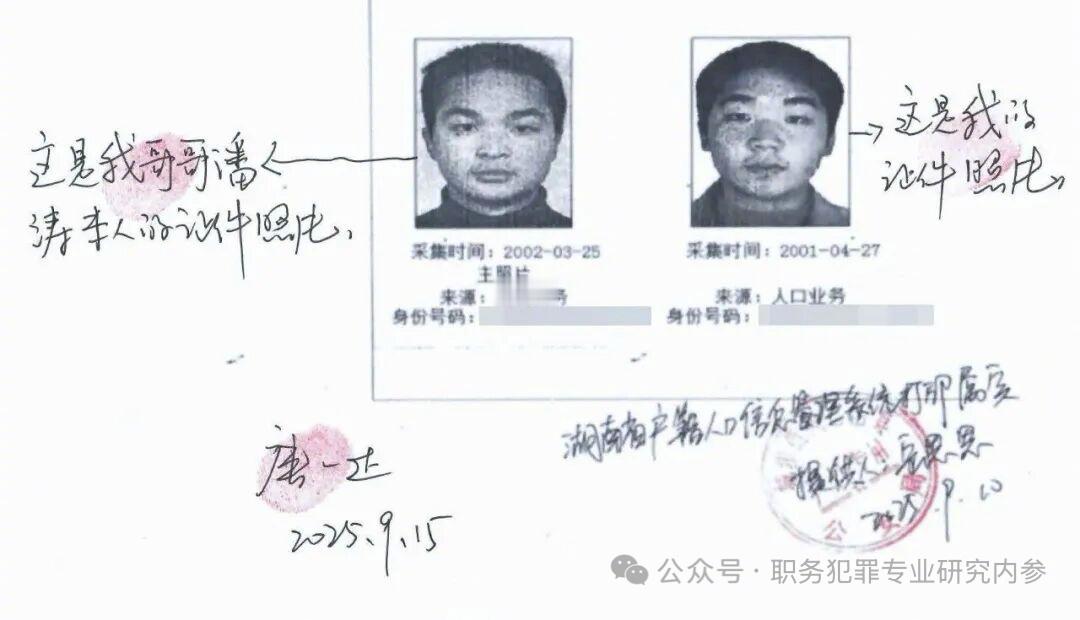 这是我哥哥潘
涛本人的证件照片、
这是我的
证件照片、
采集时间：2002-03-25
主照片
来源：
务
身份号码：
采集时间：2001-04-27
来源：人口业务
身份号码：
湖南省户籍人口信息管理系统打印属实
提供人：
2025.9.10
唐一
2025.9.15
公众号·职务犯罪专业研究内参